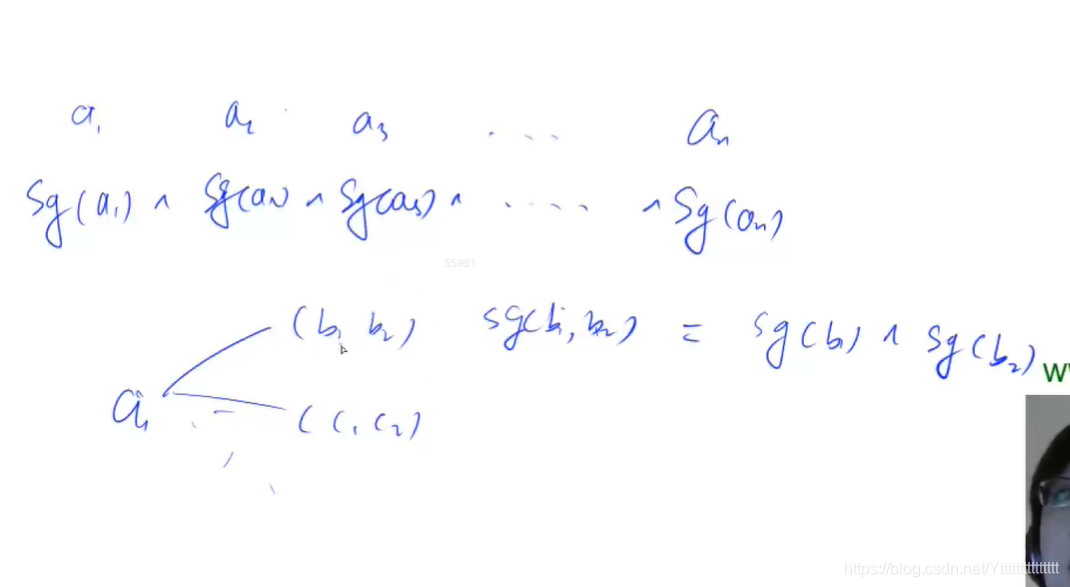 a₁ a₂ a₃ ... aₙ
Sg(a₁) ^ Sg(a₂) ^ Sg(a₃) ^ .... ^ Sg(aₙ)
55991
(b₁ b₂) sg(b₁, b₂) = sg(b₁) ^ sg(b₂)
W
a₁
(c₁ c₂)
https://blog.csdn.net/Yttttttttttttttt